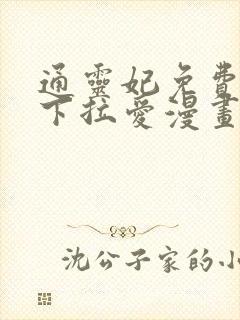 通靈妃免費
下拉愛漫畫
沈公子家的小